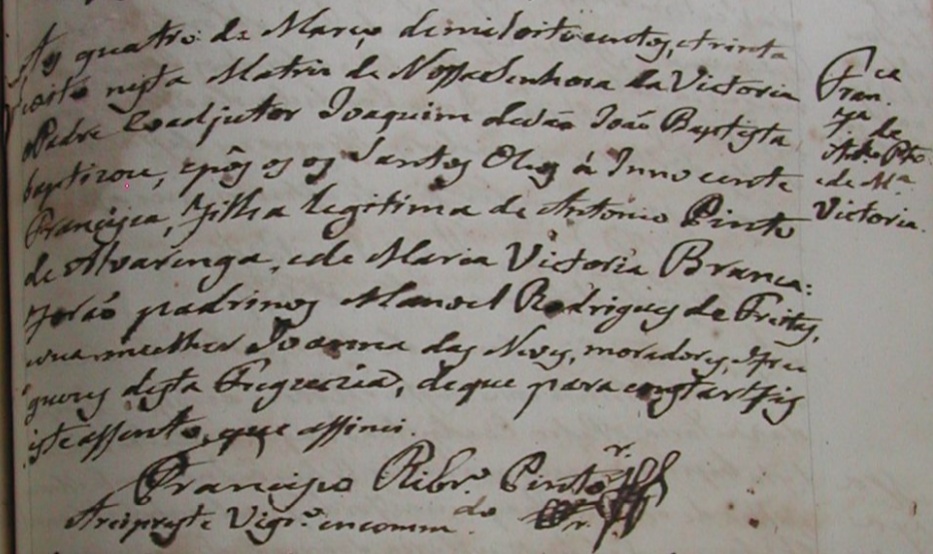 Aos quatro de Março de mil oito centos, e trinta
e oito nesta Matriz de Nossa Senhora da Victoria
o Padre Coadjutor Joaquim de São João Baptista
baptizou, e pôs os os Santos Oleos á Innocente
Francisca, filha legitima de Antonio Pinto
de Alvarenga, e de Maria Victoria Branca:
forão padrinhos Manoel Rodrigues de Freitas,
e sua mulher Joanna das Neves, moradores, e fre
gueses desta Freguezia, de que para constar fis
este assento, que assinei.
Francisco Ribr.º Pinto
Arcipreste Vigr.º encomm.do
Fran.ca
f.ª de
Ant.º Pto.
e de M.ª
Victoria.